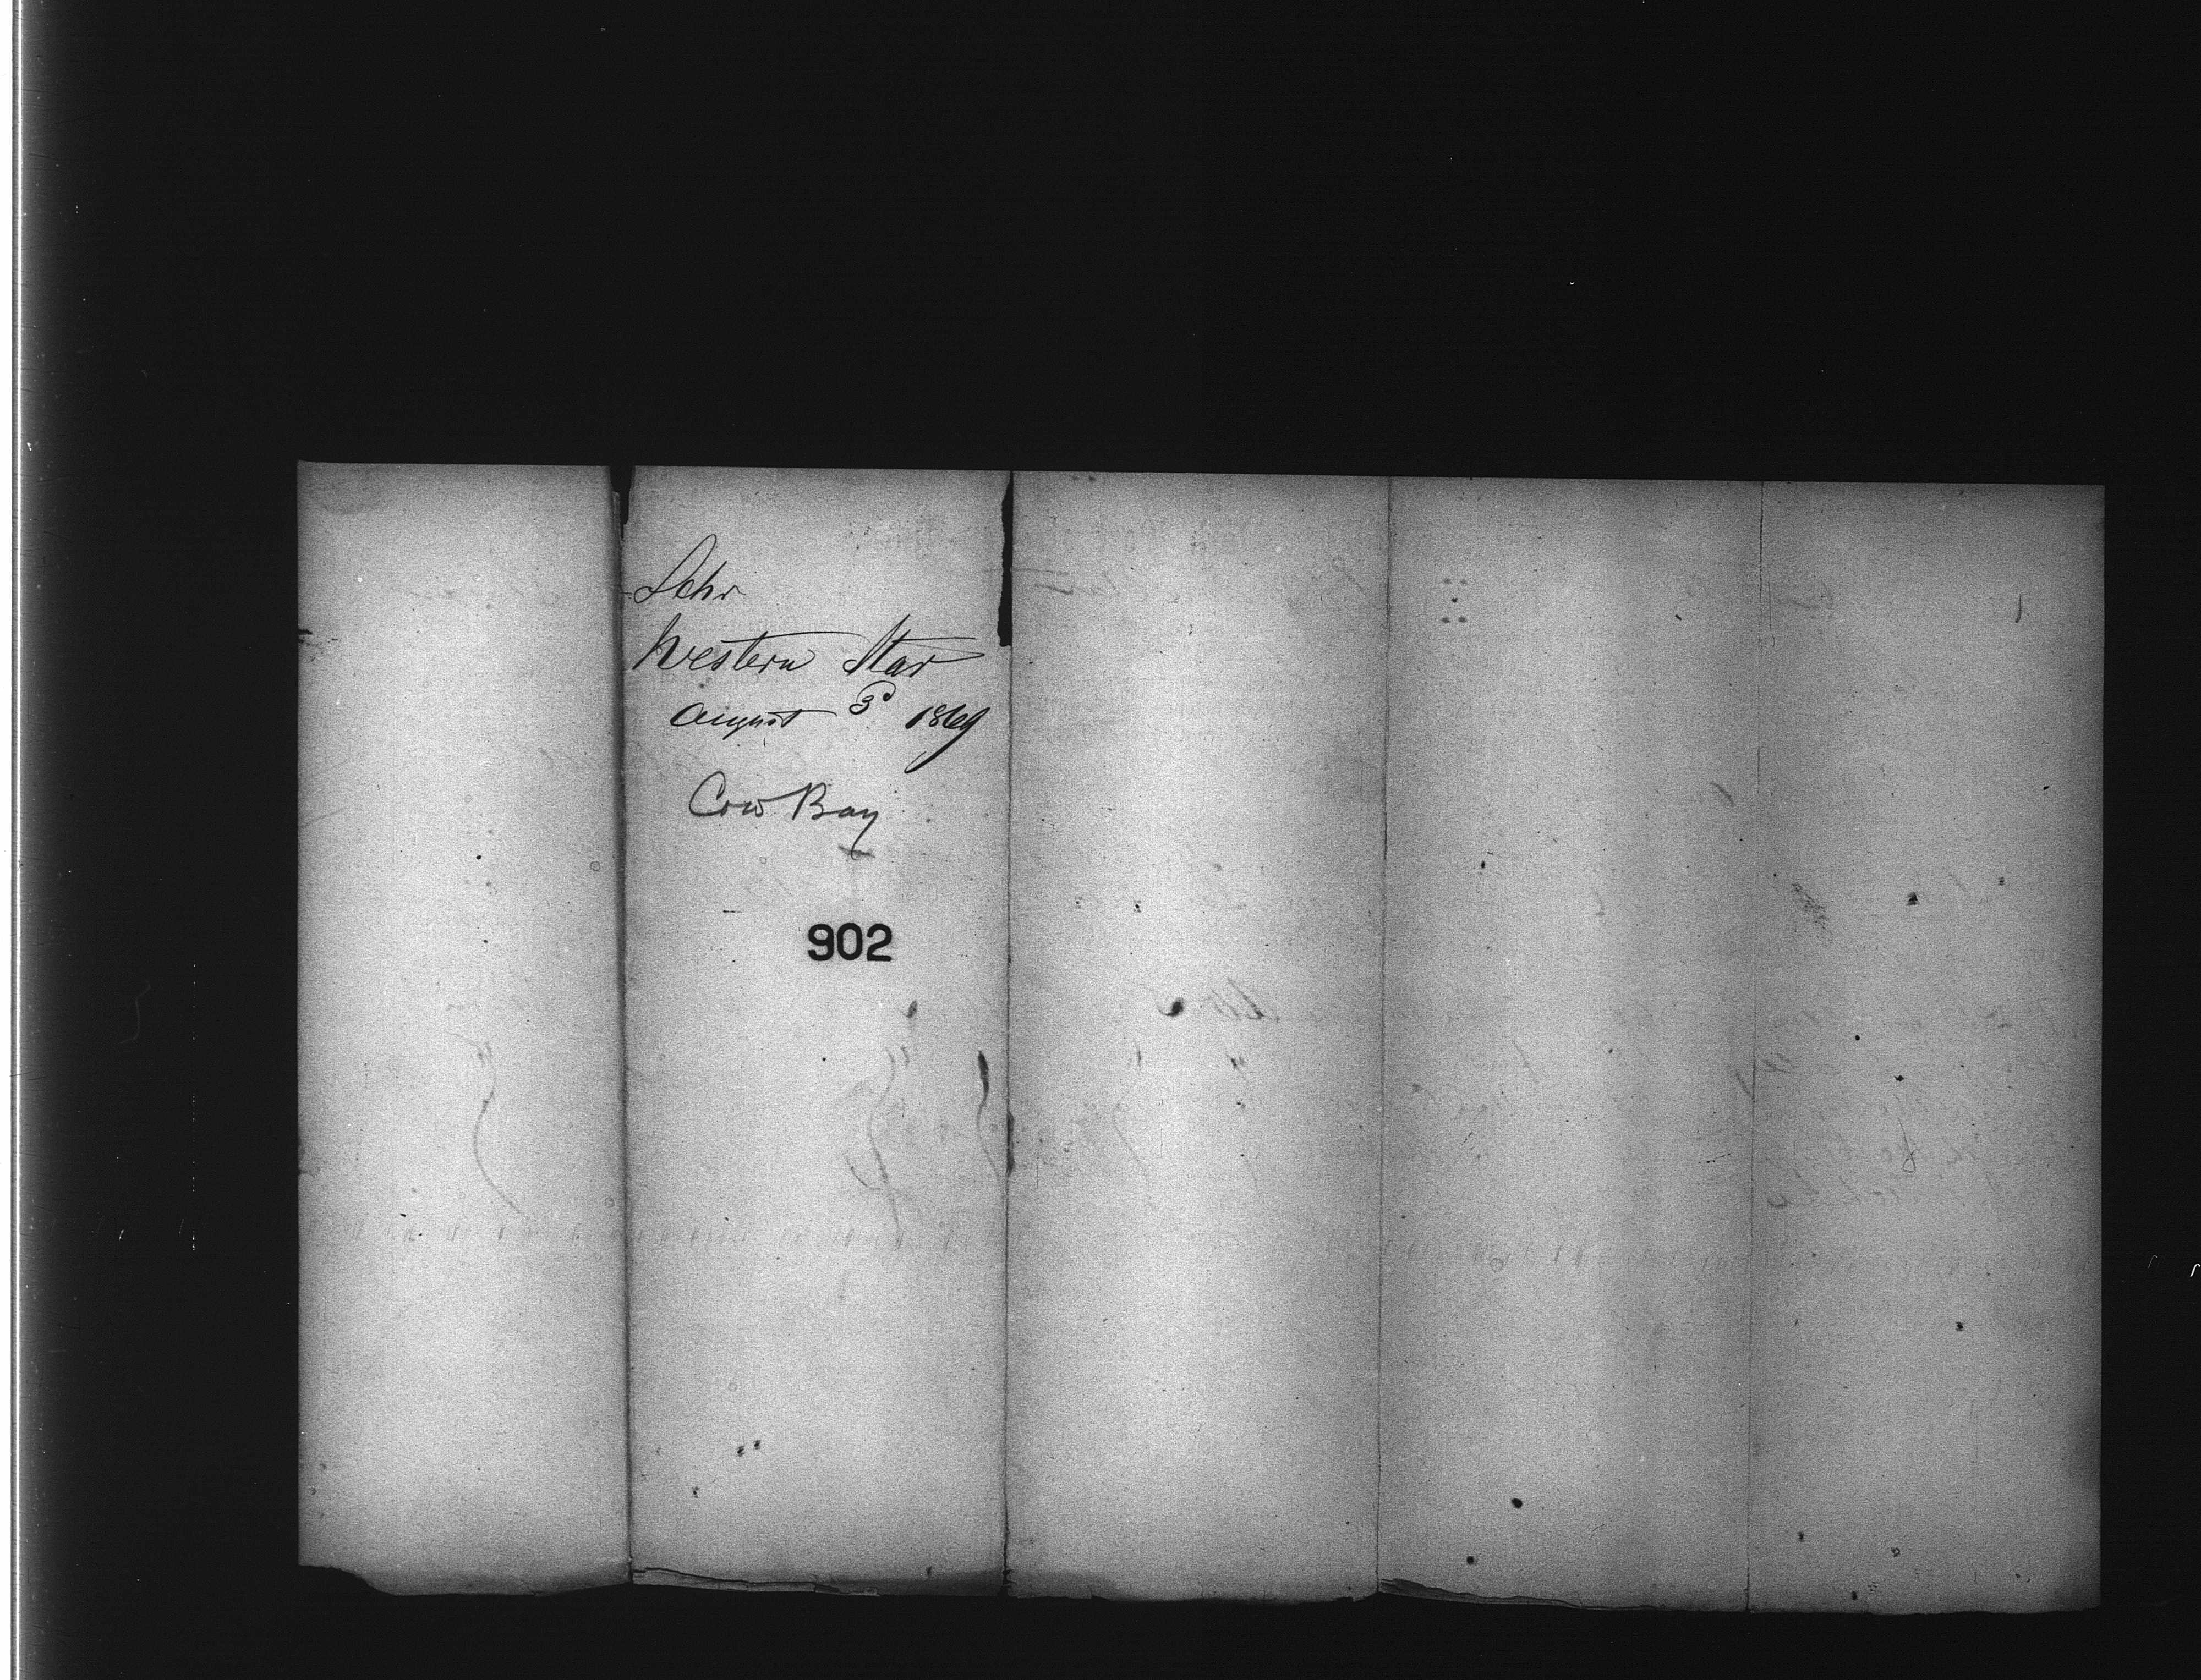 Schr
Western Star
August 3d 1869
Cow Bay
902